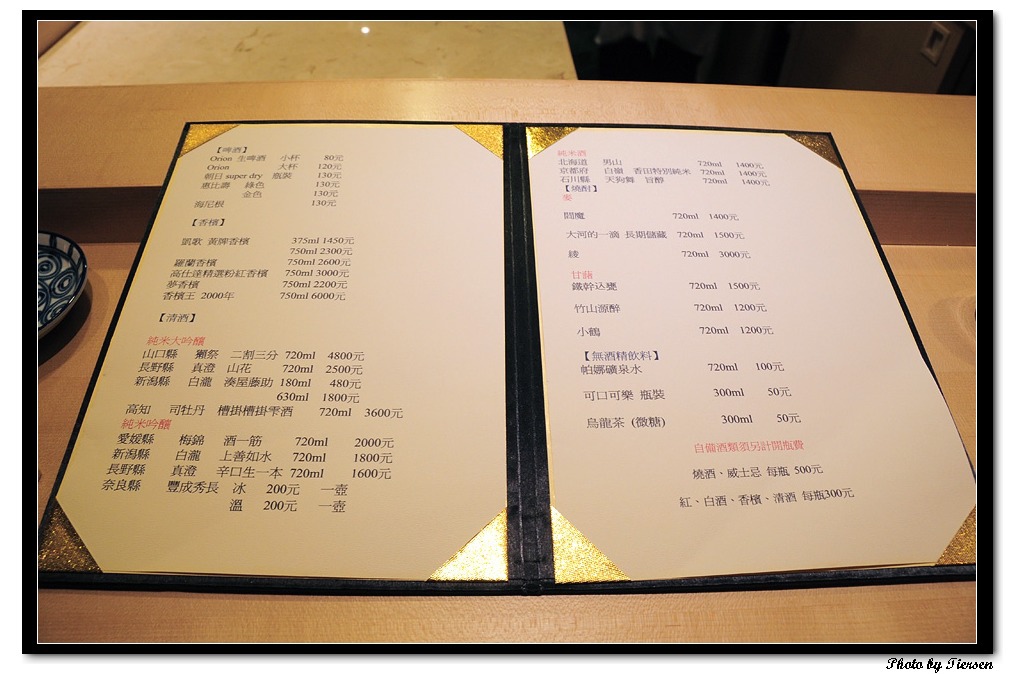 【啤酒】
Orion 生啤酒 小杯 80元
Orion 大杯 120元
朝日 super dry 瓶裝 130元
惠比壽 綠色 130元
金色 130元
海尼根 130元
【香檳】
凱歌 黃牌香檳 375ml 1450元
750ml 2300元
羅蘭香檳 750ml 2600元
高仕達精選粉紅香檳 750ml 3000元
夢香檳 750ml 2200元
香檳王 2000年 750ml 6000元
【清酒】
純米大吟釀
山口縣 獺祭 二割三分 720ml 4800元
長野縣 真澄 山花 720ml 2500元
新潟縣 白瀧 湊屋藤助 180ml 480元
630ml 1800元
高知 司牡丹 槽掛槽掛雫酒 720ml 3600元
純米吟釀
愛媛縣 梅錦 酒一筋 720ml 2000元
新潟縣 白瀧 上善如水 720ml 1800元
長野縣 真澄 辛口生一本 720ml 1600元
奈良縣 豐成秀長 冰 200元 一壺
溫 200元 一壺
純米酒
北海道 男山 720ml 1400元
京都府 白嶺 香田特別純米 720ml 1400元
石川縣 天狗舞 旨醇 720ml 1400元
【燒酎】
麥
閻魔 720ml 1400元
大河的一滴 長期儲藏 720ml 1500元
綾 720ml 3000元
甘藷
鐵幹込甕 720ml 1500元
竹山源醉 720ml 1200元
小鶴 720ml 1200元
【無酒精飲料】
帕娜礦泉水 720ml 100元
可口可樂 瓶裝 300ml 50元
烏龍茶 (微糖) 300ml 50元
自備酒類須另計開瓶費
燒酒、威士忌 每瓶 500元
紅、白酒、香檳、清酒 每瓶300元
Photo by Tiersen